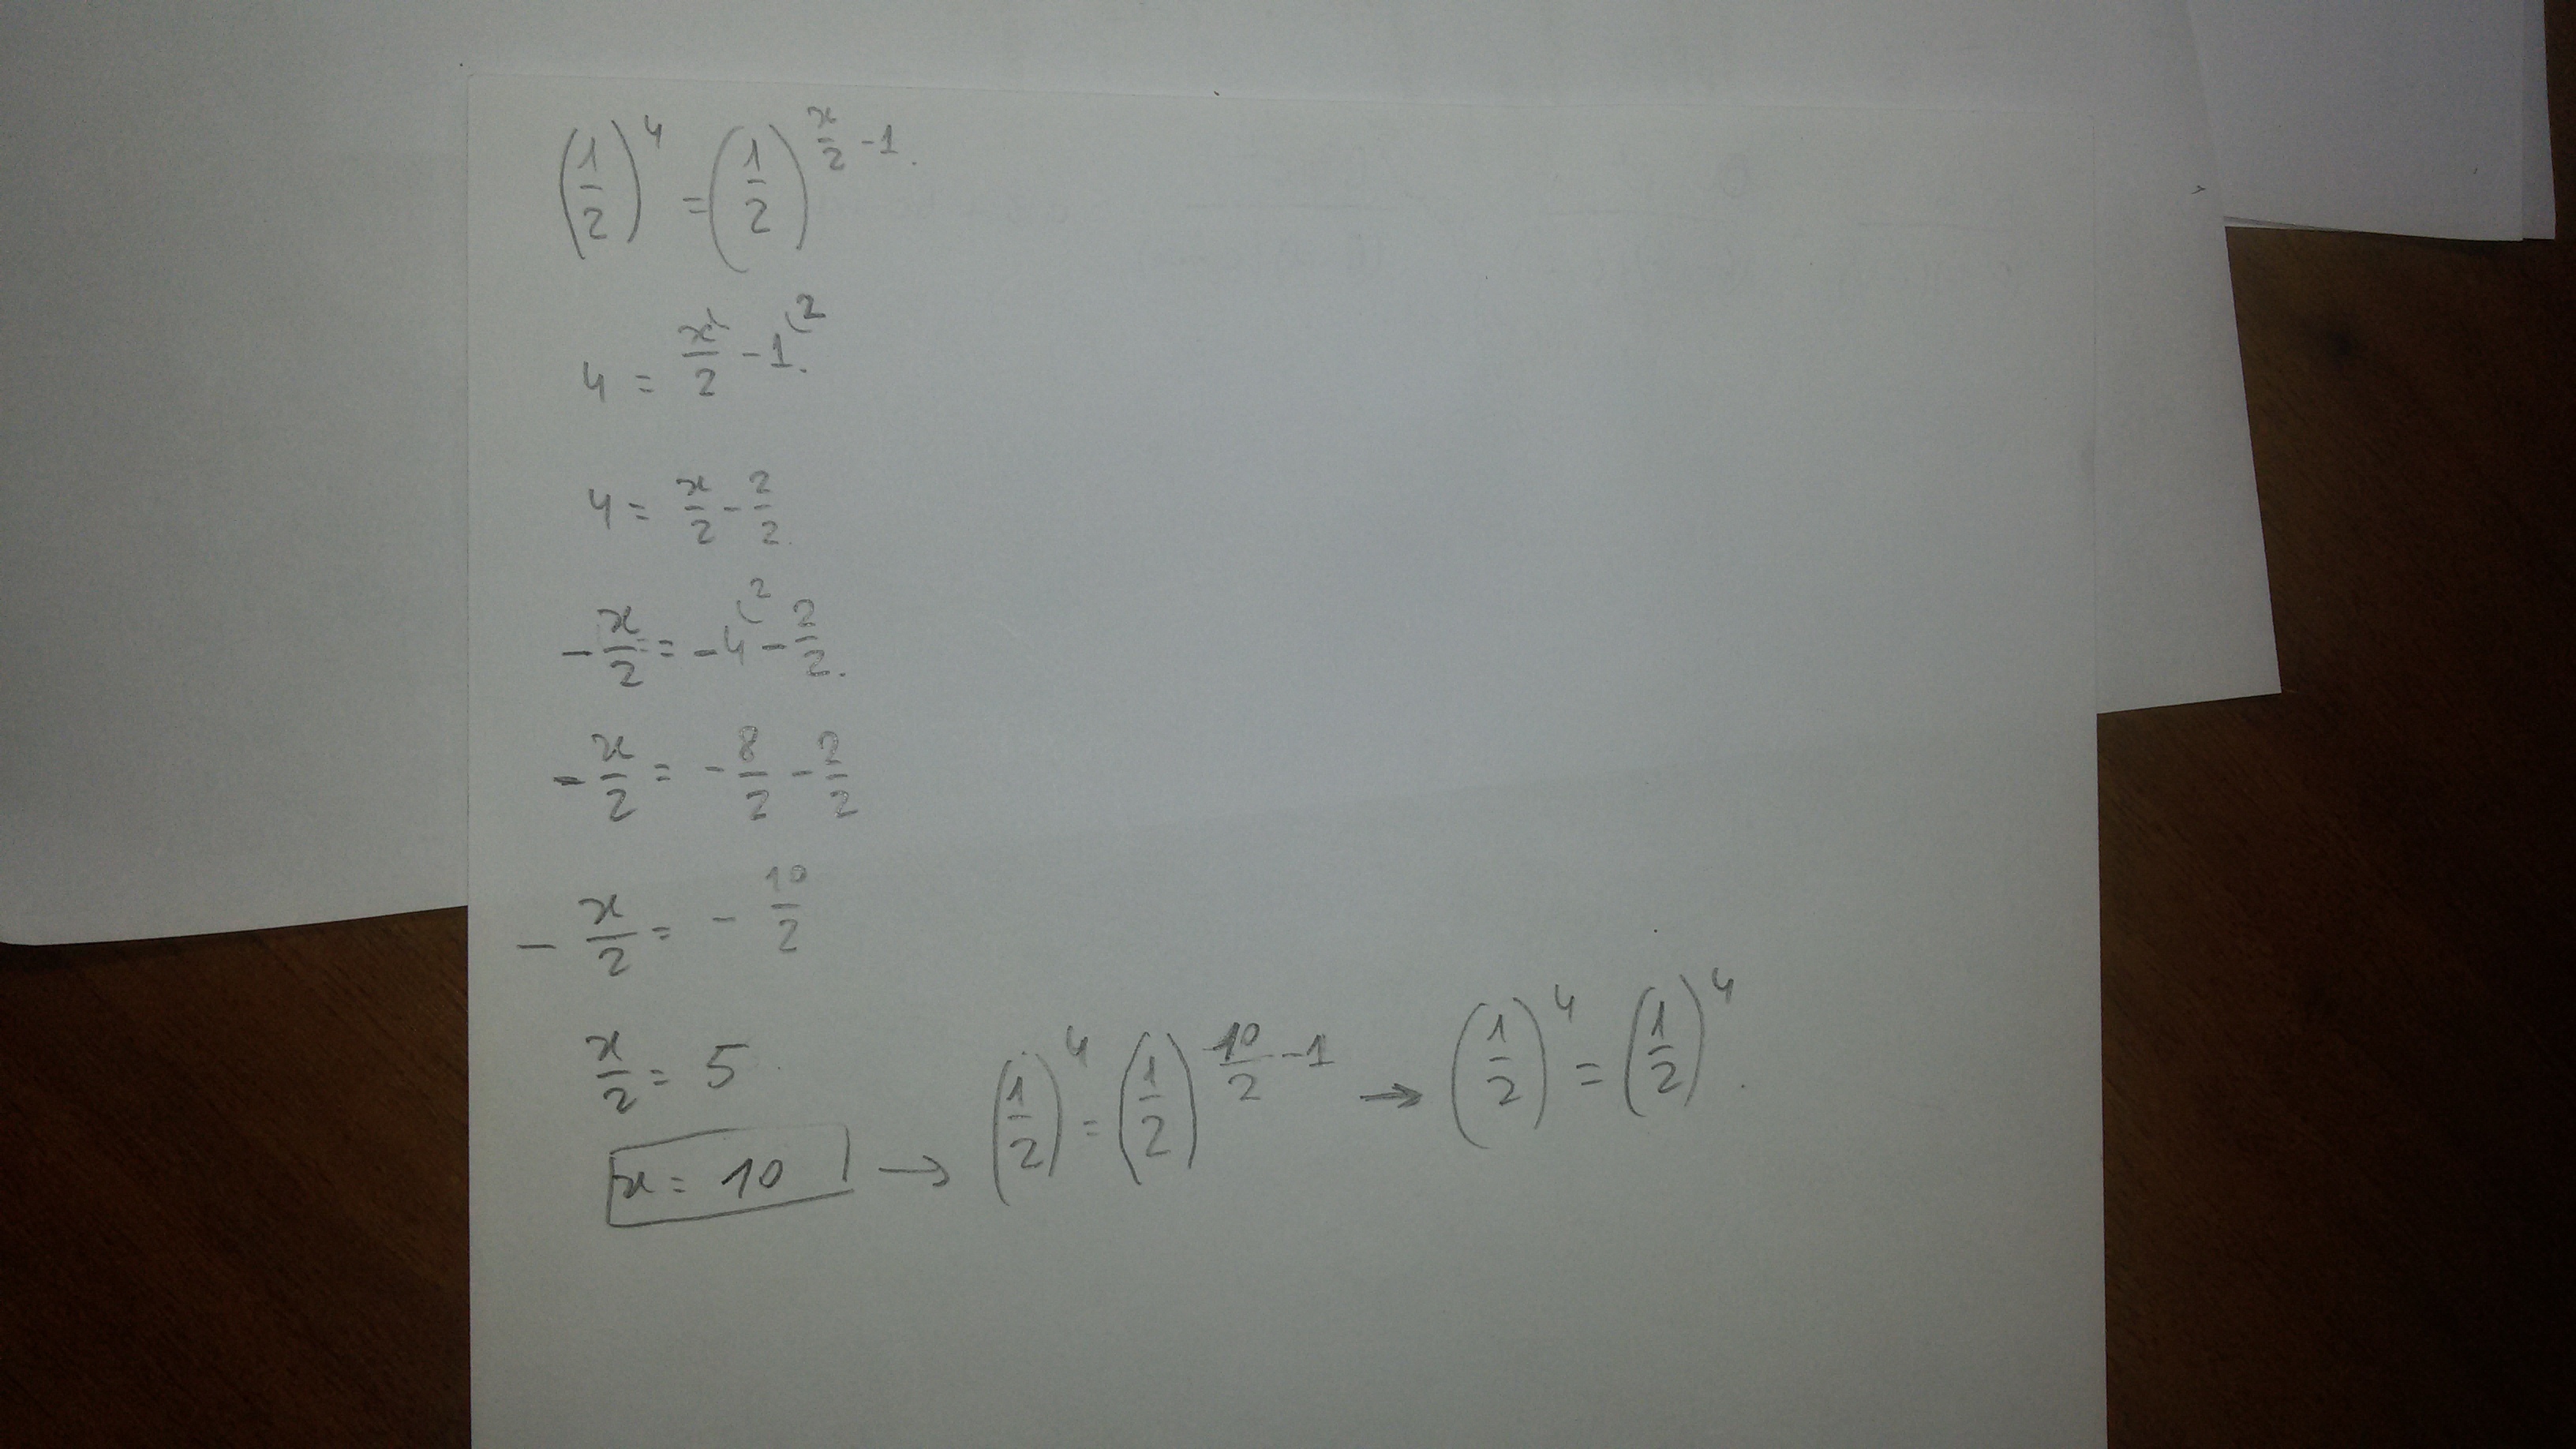 (1/2)^4 = (1/2)^(x/2 - 1).
4 = x/2 - 1.(2
4 = x/2 - 2/2.
- x/2 = -4(2 - 2/2.
- x/2 = - 8/2 - 2/2
- x/2 = - 10/2
x/2 = 5
x = 10 → (1/2)^4 = (1/2)^(10/2 - 1) → (1/2)^4 = (1/2)^4.